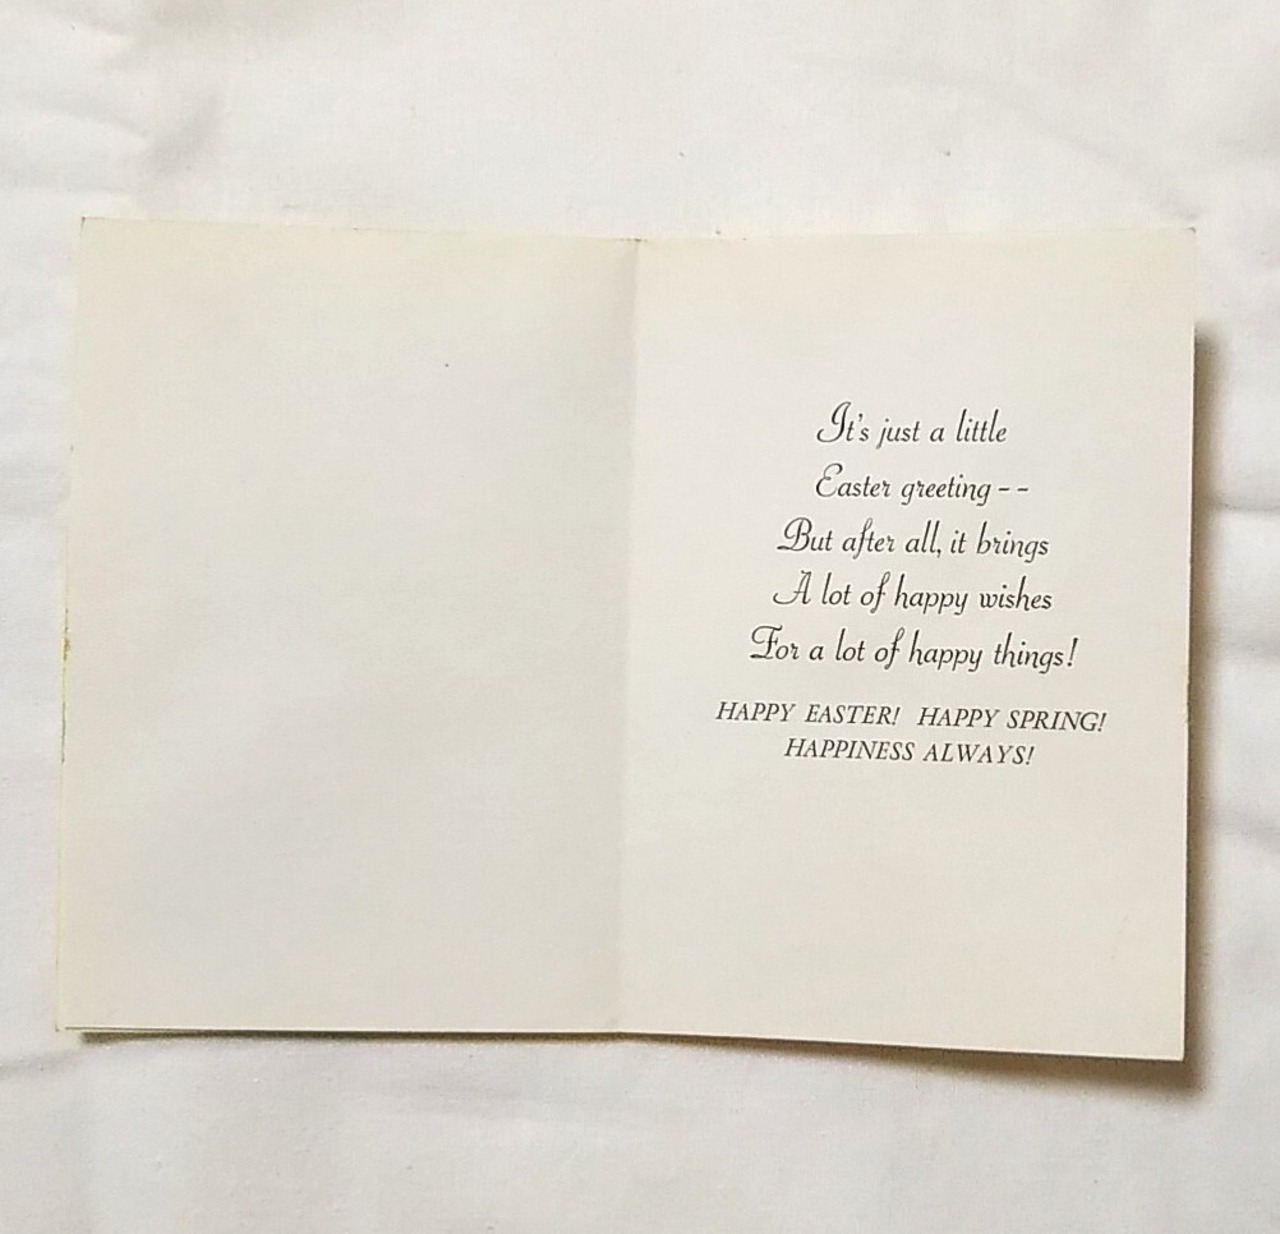 It's just a little
Easter greeting--
But after all, it brings
A lot of happy wishes
For a lot of happy things!
HAPPY EASTER! HAPPY SPRING!
HAPPINESS ALWAYS!